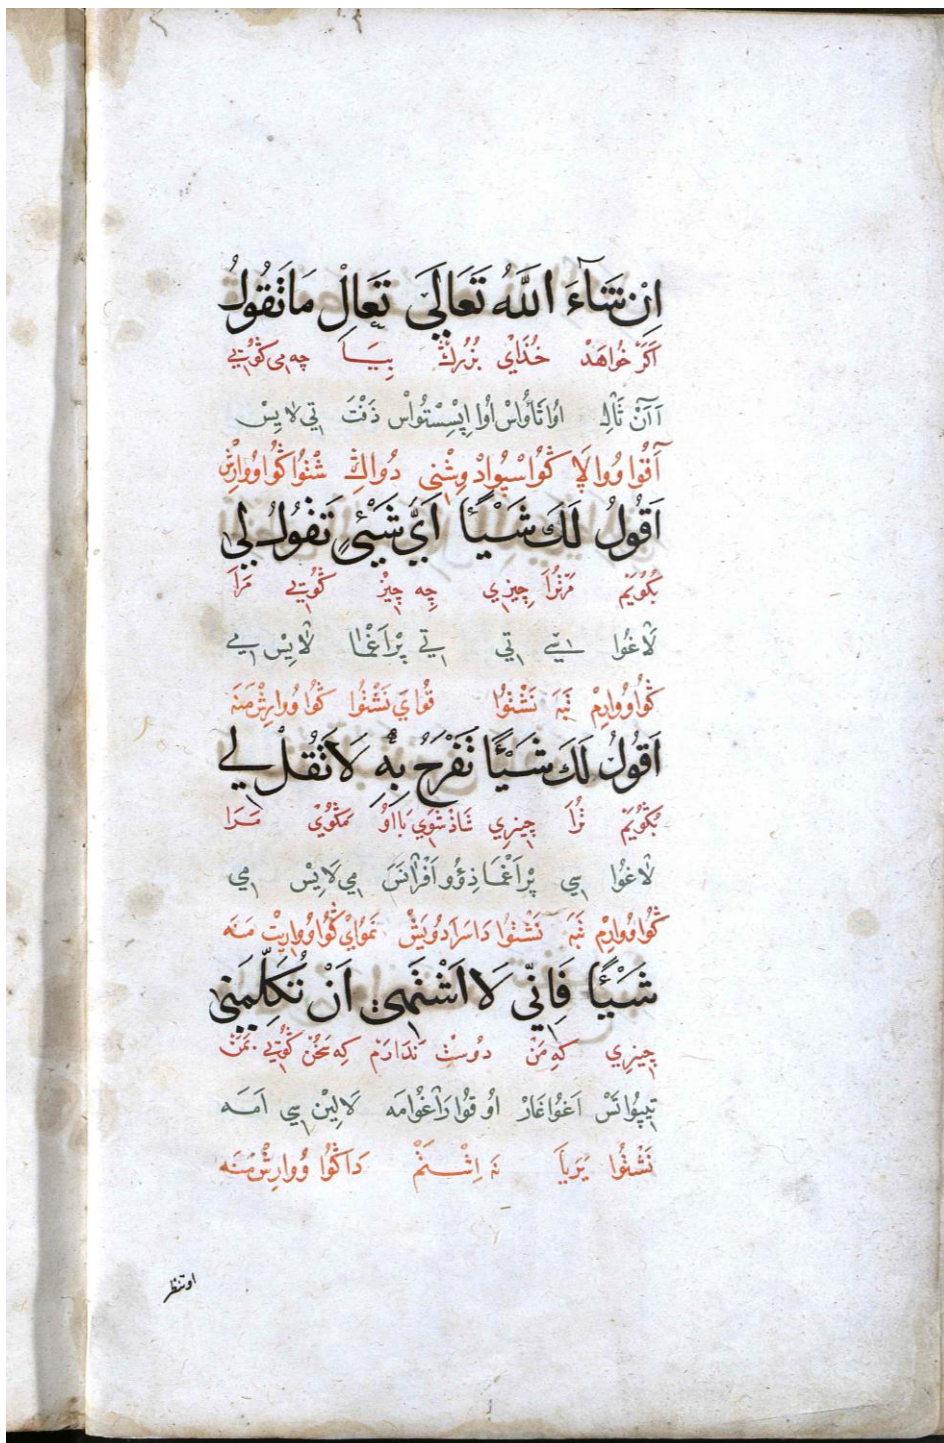 اِنْ شَآءَ اللَّهُ تَعَالَى تَعَالْ مَا تَقُولُ
اَكَرْ خُواهَدْ خُدَاىْ بُزُرك بِيَا چه مى كُوُيى
اَآنْ ثَالِهْ اوُاثَاوُاسْ اوُا اِپِسْتُواسْ ذَفْتَ تى لايِسْ
آقُوا وُوالاِ ݣُوا سْپُوادْ وِشْنِى دُوالݣِ شْتُوا ݣُوا وُوارِشْ
اَقُولُ لَكَ شَيْئًا اَىُّ شَيْئٍ تَقُولُ لِى
بُكُويَمْ مَرْتُرَا چِيزِي چِه چِيزْ كُويى مَرَا
لَاغُوا سى تى تى پْرَاغْمَا لَايِسْ مى
ݣُوا وُوارِمْ نَشْتُوا ݣُوا وُوارِشْ مَنَه
اَقُولُ لَكَ شَيْئًا تَفْرَحُ بِهِ لَا تَقُلْ لِى
بُكُويَمْ تُرَا چِيزِي شَادْ شَوِي بَا اوُ مَكُوىْ مَرَا
لَاغُوا سِى پْرَاغْمَا ذِوُو اَفْرَانَسَ مِى لَايِسْ مِى
ݣُوا وُوارِمْ نَشْتُوا دَاسَرَادُويَشْ نَمُواىْ ݣُوا وُوارِتْ مَنَه
شَيْئًا فَاِنِّى لَا اَشْتَهِى اَنْ تُكَلِّمَنِى
چِيزِي كِه مَنْ دُوسْتْ نَدَارَمْ كِه سَخُنْ كُويى بَمَنْ
تِيپُواتَسْ اَغُوا غَارْ اوُ قُوارَاغُوامَه لَالِينْ سِى اَمَه
نَشْتُوا يَرْيَا نَه اِشْتَمْ دَا ݣُوا وُوارِشْ مَنَه
اوتنظر